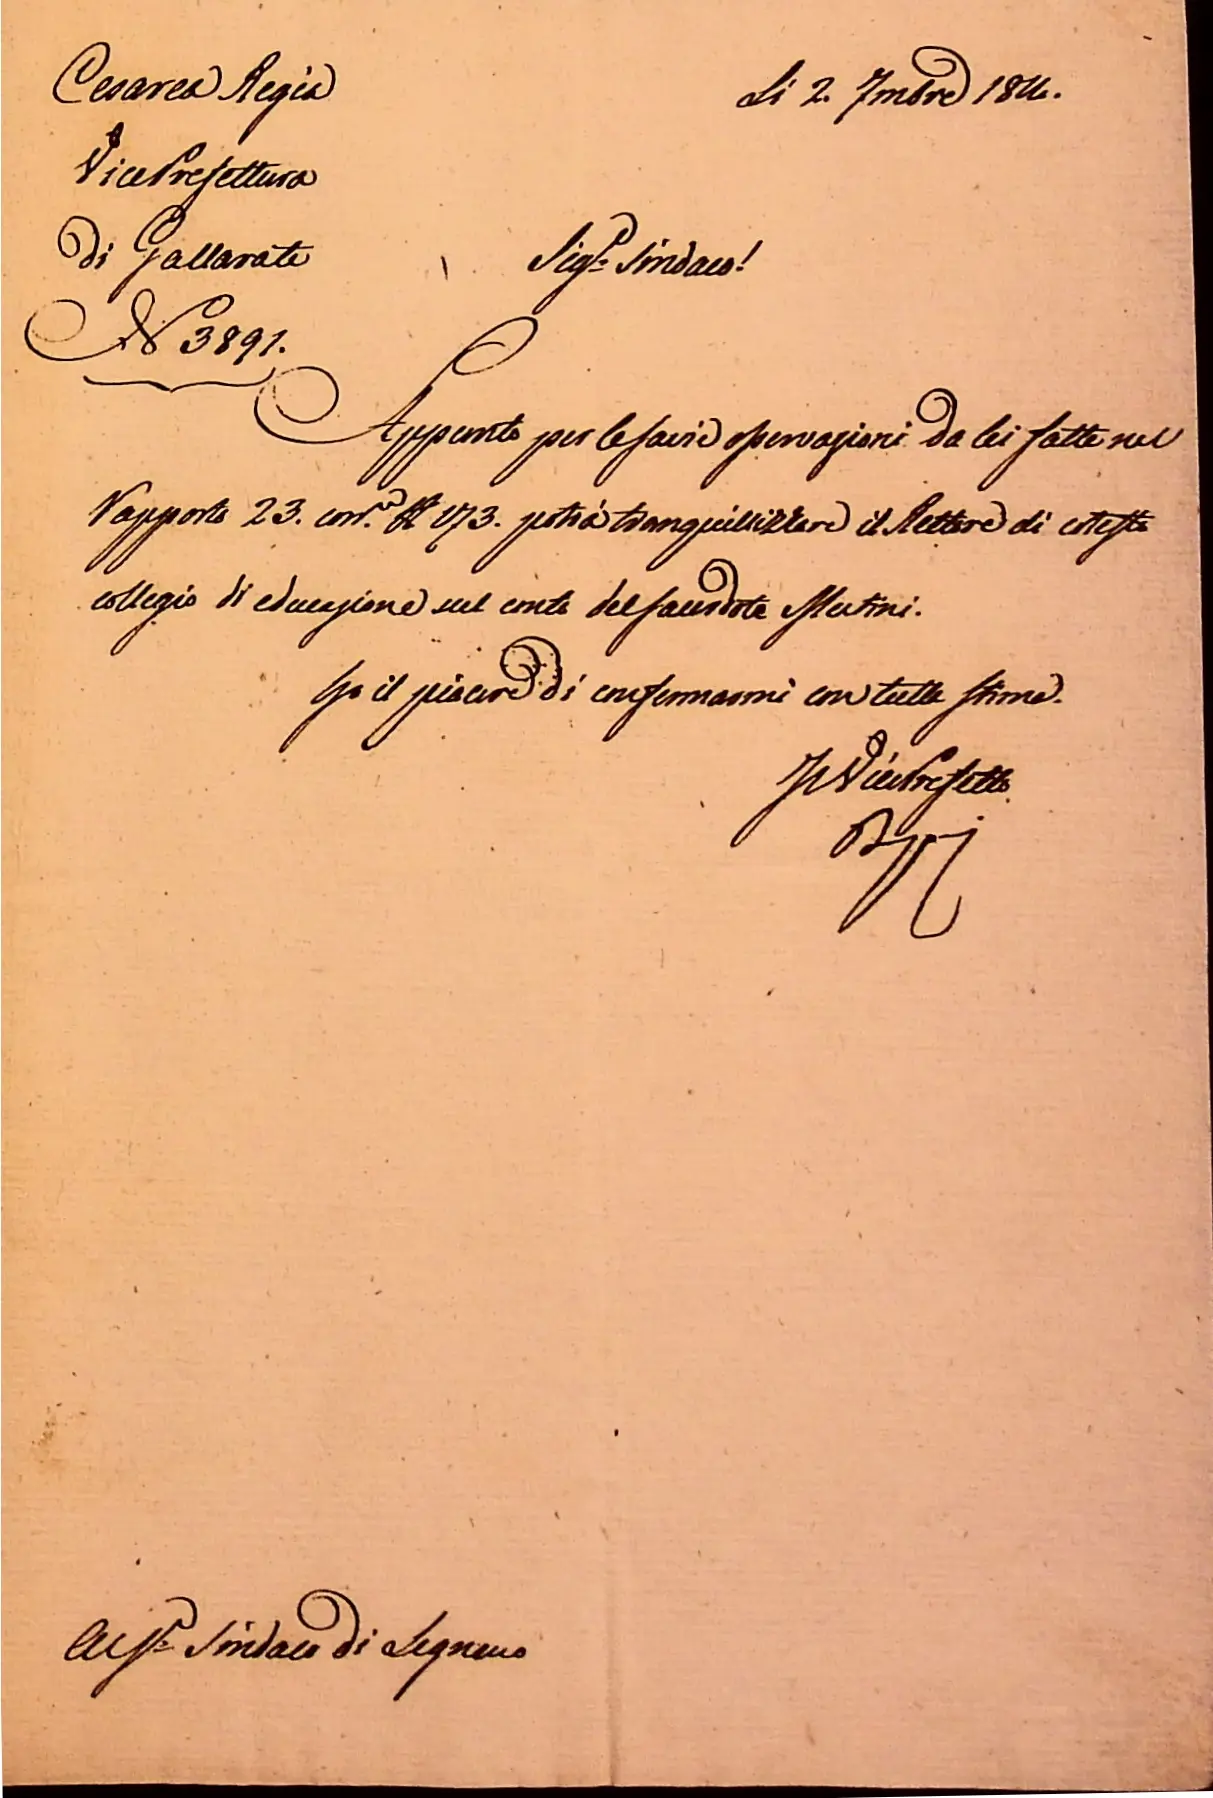 Cesarea Regia
Li 2. 7mbre 1814.
Vice Prefettura
di Gallarate
Sig.r Sindaco!
N 3891.
Appunto per le savie osservazioni da lei fatte nel
rapporto 23. corr.te N 173. potrà tranquillizzare il Rettore di cotesto
collegio di educazione sul conto del sacerdote
Ho il piacere di confermarmi con tutta stima.
Il Vice Prefetto
Al S.r Sindaco di Legnano